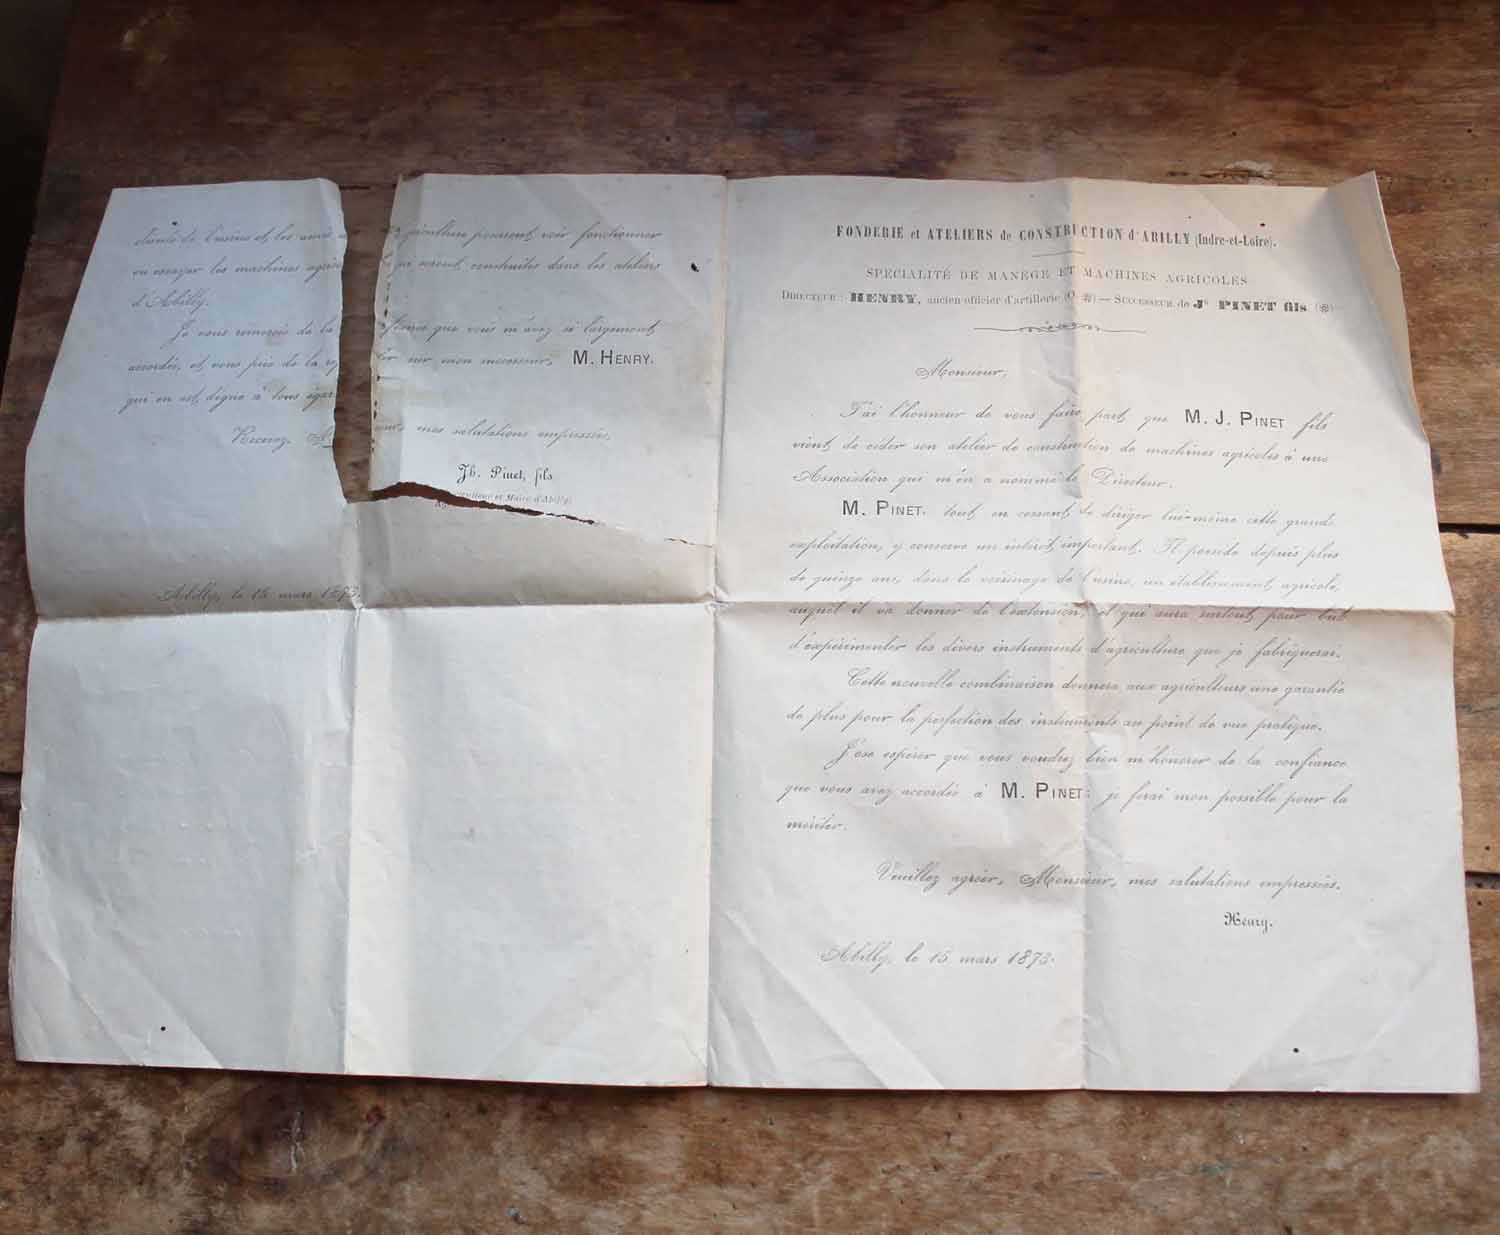 diants de l'usine et les amis
ou essayer les machines agric
d'Abilly.
Je vous remercie de la
accordée, et vous prie de la
qui en est digne à tous égar
Recevez,
griculture pourront voir fonctionner
qui seront construites dans les ateliers
fiance que vous m'avez si largement
sur mon successeur, M. HENRY.
mes salutations empressées.
Jh. Pinet, fils
et Maire d'Abilly.
Abilly, le 15 mars 1873.
FONDERIE et ATELIERS de CONSTRUCTION d'ABILLY (Indre-et-Loire).
SPÉCIALITÉ DE MANÈGE ET MACHINES AGRICOLES
DIRECTEUR : HENRY, ancien officier d'artillerie (O. ✻) — SUCCESSEUR de Jh PINET fils (✻)
Monsieur,
J'ai l'honneur de vous faire part que M. J. PINET fils
vient de céder son atelier de construction de machines agricoles à une
Association qui m'en a nommé le Directeur.
M. PINET, tout en cessant de diriger lui-même cette grande
exploitation, y conserve un intérêt important. Il possède depuis plus
de quinze ans, dans le voisinage de l'usine, un établissement agricole,
auquel il va donner de l'extension, et qui aura surtout pour but
d'expérimenter les divers instruments d'agriculture que je fabriquerai.
Cette nouvelle combinaison donnera aux agriculteurs une garantie
de plus pour la perfection des instruments au point de vue pratique.
J'ose espérer que vous voudrez bien m'honorer de la confiance
que vous avez accordée à M. PINET; je ferai mon possible pour la
mériter.
Veuillez agréer, Monsieur, mes salutations empressées.
Henry.
Abilly, le 15 mars 1873.